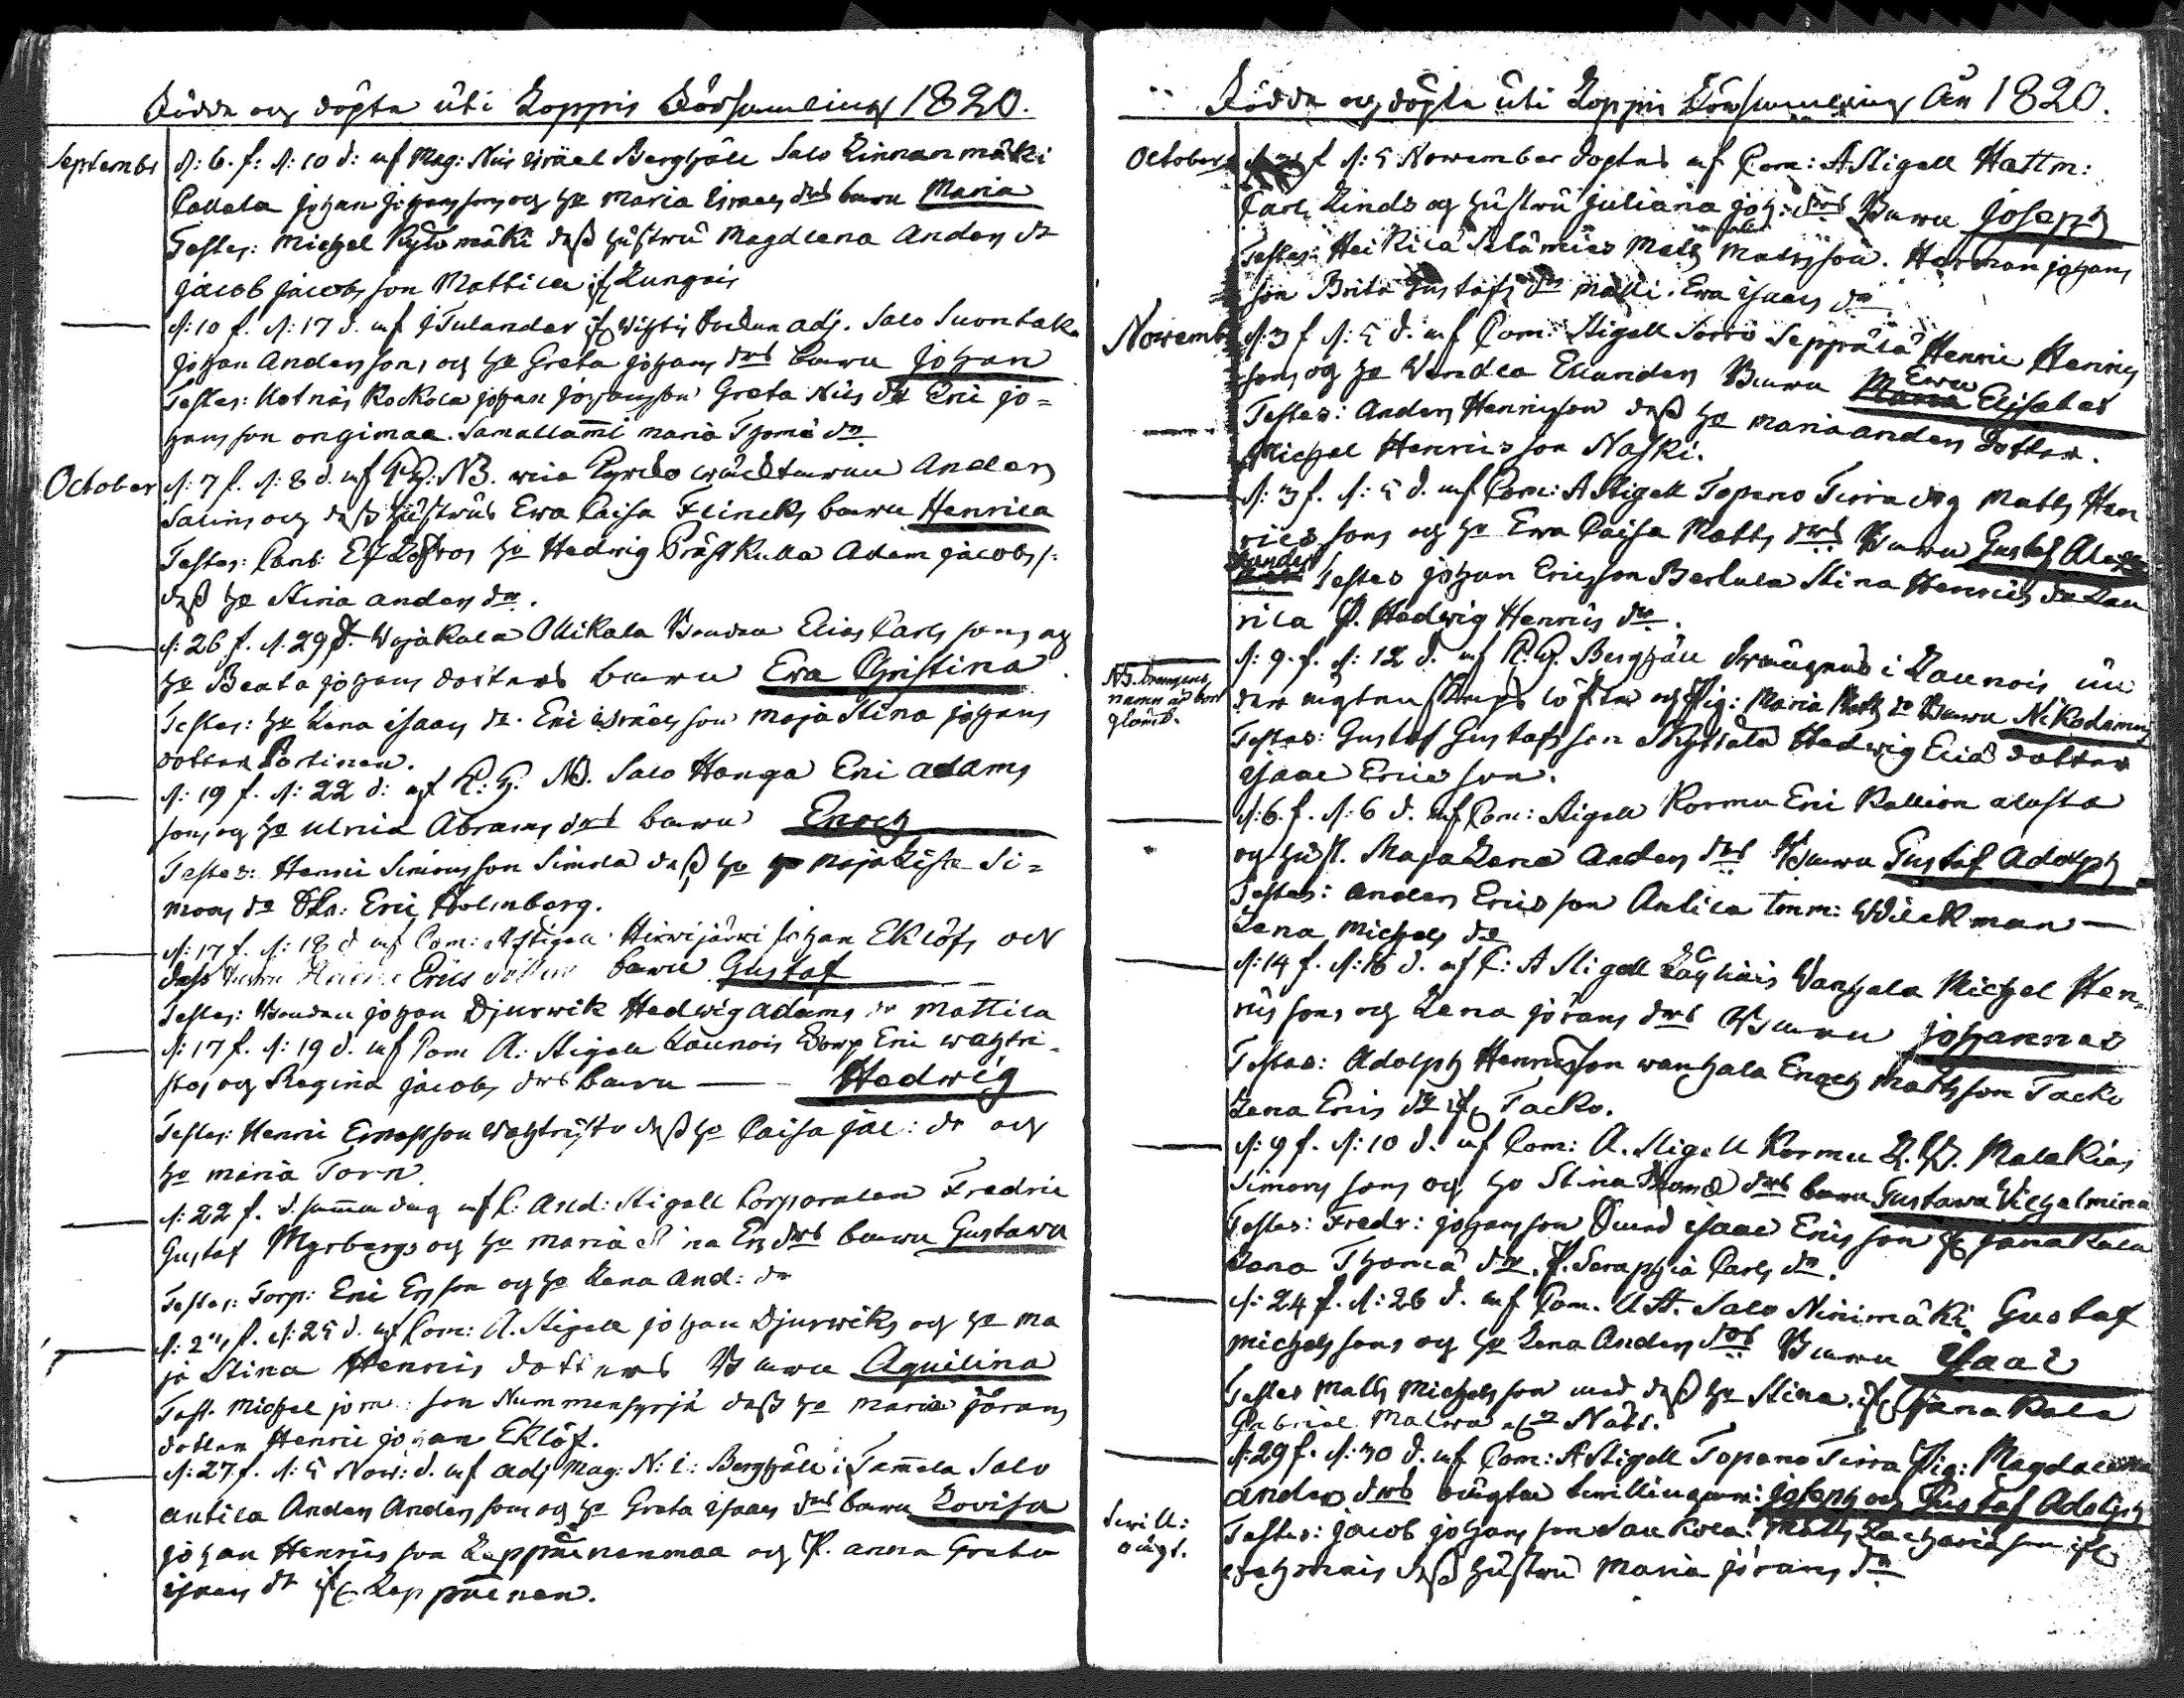 Födde och döpte uti Loppis Församling 1820.
Septembr d: 6. f: d: 10 d: af Mag: Nils Israel Berghäll Salo Linnanmäki
Callela Johan Johanssons och h:o Maria Israels drs barn Maria
Testes: Michel Kylömäki dess hustru Magdlena Anders dr
Jacob Jacobsson Mattila if. Kungais
d: 10 f. d: 17 d. af J Tulander if Wichtis Socken adj. Salo Suontaka
Johan Anderssons och h:o Greta Johans drs barn Johan
Testes: Kotnäs Kockola Johan Johansson Greta Nils dr Eric Jo=
hansson ongimaa. Samallami maria Thome dr
October d: 7 f. d: 8 d. af NB. wia Pyrelo wäcktmann Anders
Salins och dess hustrus Ewa Caisa Flincks barn Henrica
Testes: h:o Hedwig Prästkulla Adam Jacobs s:
dess h:o Stina anders dr.
d: 26 f. d: 29 d. Wojakala Ollikala Bonden Elias Carls sons och
h:o Beata Johans dotters barn Ewa Christina
Testes: h:o Lena Isaacs dr. Eric Israels son Maja Stina Johans
dotter Portinen.
d: 19 f. d: 22 d: af C: G. NB. Salo Hanga Eric adams
sons och h:o Ulrica Abrams drs barn Enoch
Testes: Henric Simonsson Simola dess h:o Maja Lisa Si=
mons dr Eric Holmberg.
d: 17 f. d: 18 d af Com: A Stigell Hirwijärwi Johan Eklöfs och
dess Erics dotters barn Gustaf
Testes: Bonden Johan Djurwik Hedwig adams dr Mattila
d: 17 f. d: 19 d. af Com A. Stigell Launois Torp Eric wachtri=
stos och Regina Jacobs drs barn — Hedwig
Testes: Henric wachtristo dess h:o Caisa Jac: dr och
h:o maria Torn
d: 22 f. d. samma dag af C: And: Stigell Corporalen Fredric
Gustaf Myrbergs och h:o maria Stina Ers drs barn Gustawa
Testes: Torp: Eric Ersson och h:o Lena And: dr
f. d: 25 d. af Com: A. Stigell Johan Djurwiks och h:o Ma
ja Stina Henrics dotters Barn Aquilina
Test. Michel son Nummenhyrjä dess h:o maria Jörans
dotter Henric Johan Eklöf.
d: 27 f. d: 5 Now: d. af adj Mag: N: I: Berghäll i Tammela Salo
antila Anders Anderssons och h:o Greta Isaacs drs barn Lovisa
Johan Henrics son Leppäinenmaa och P. anna Greta
Isaacs dr if. Leppäinen.
Födde och döpte uti Loppis Församling År 1820.
October f d: 5 November döptes af Com: A Stigell Hattm:
Carl Linds och hustru Juliana Joh: drs Barn Joseph
Testes: Heikilä Matts Matsson. Herman Johans
son Brita Gustafs dr mälli. Ewa Isaacs dr
Novemb d: 3 f d: 5 d. af Com: Stigell Sorro Seppälä Henric Henrics
sons och h:o Wendla Ellanders Barn Ewa Elisabet
Testes: Anders Henricsson dess h:o maria anders Dotter.
Michel Henricsson Naski.
d: 3 f. d: 5 d. af Com: A Stigell Topeno Tirra drg Matts Hen
rics sons och h:o Ewa Caisa Matts drs Barn Gustaf Alex
ander Testes Johan Ericsson Bertula Stina Henrics dr Lau
rila P. Hedwig Henrics dr.
NB. drengens
namn är bort
glömt.
d: 9. f. d: 12 d. af Berghäll Drängens i Launois un
der ägtenskaps löfte och Pig: Maria Matts dr Barn Nikodemus
Testes: Gustaf Gustafsson Skyttälä Hedwig Erics dotter
Isaac Ericsson.
d: 6. f. d: 6 d. af Com: Stigell Kormu Eric Kallion alusta
och hust. Maja Lena Anders drs Barn Gustaf Adolph
Testes: anders Ericsson Anlila Wilckman —
Lena Michels dr
d: 14 f. d: 16 d. af C: A Stigell Läyliäis Vanhala Michel Hen=
rics sons och Lena Jörans drs Barn Johannes
Testes: Adolph Henricsson wanhala Enoch Mattsson Tacko
Lena Erics dr if Tacko.
d: 9 f. d: 10 d. af Com: A. Stigell Kormu Malakias
Simons sons och h:o Stina Thome drs barn Gustawa Wilhelmina
Testes: Fredr: Johansson Sund Isaac Ericsson if Janakala
Lena Thomä dr. P. Seraphia Carls dr.
d: 24 f. d: 26 d. af Com. A St. Salo Ninimäki Gustaf
Michelssons och h:o Lena Anders drs Barn Isaac
Testes Matts Michelsson med dess h:o Stina. if Janakala
Gabriel Malwa
d: 29 f. d: 30 d. af Com: A Stigell Topeno Tirra Pig: Magdalena
anders drs oägta twillingarne: Joseph och Gustaf Adolph
Twill:
oägt.
Testes: Jacob Johansson Matts Zachariasson if
dess hustru Maria Jörans dr